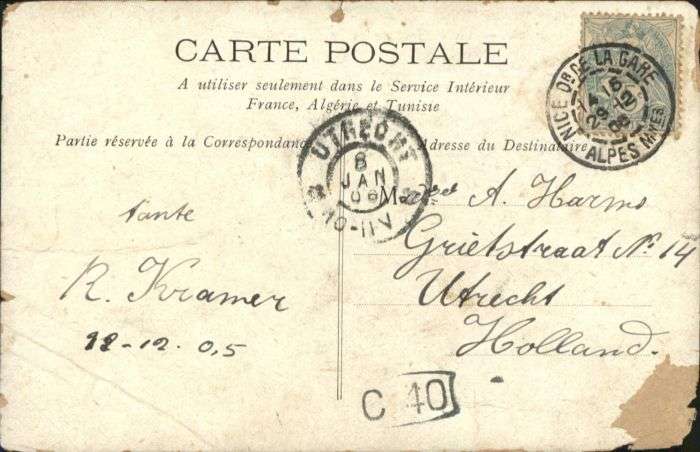 CARTE POSTALE
A utiliser seulement dans le Service Intérieur
France, Algérie et Tunisie
Partie réservée à la Correspondance
Adresse du Destinataire
NICE Dᴮ DE LA GARE
ALPES MMES
UTRECHT
8
JAN
06
10-11 V
A. Harms
Grietstraat No. 14
Utrecht
Holland.
tante
R. Kramer
12-05
C 40